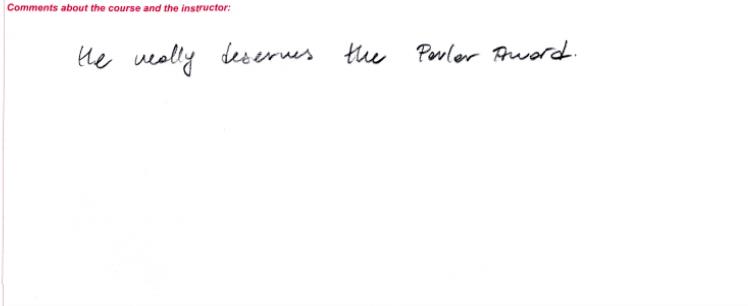 Comments about the course and the instructor:
He really deserves the Pavlar Award.